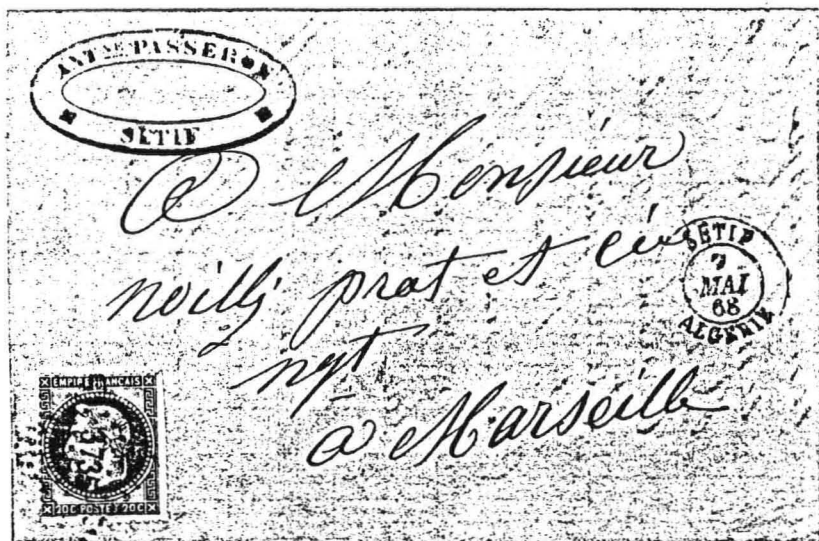 ANT NE PASSERON
SÉTIF
@ Monsieur
noilly prat et cie
ngt
à Marseille
SETIF
7
MAI
68
ALGERIE
EMPIRE FRANCAIS
20C POSTES 20C